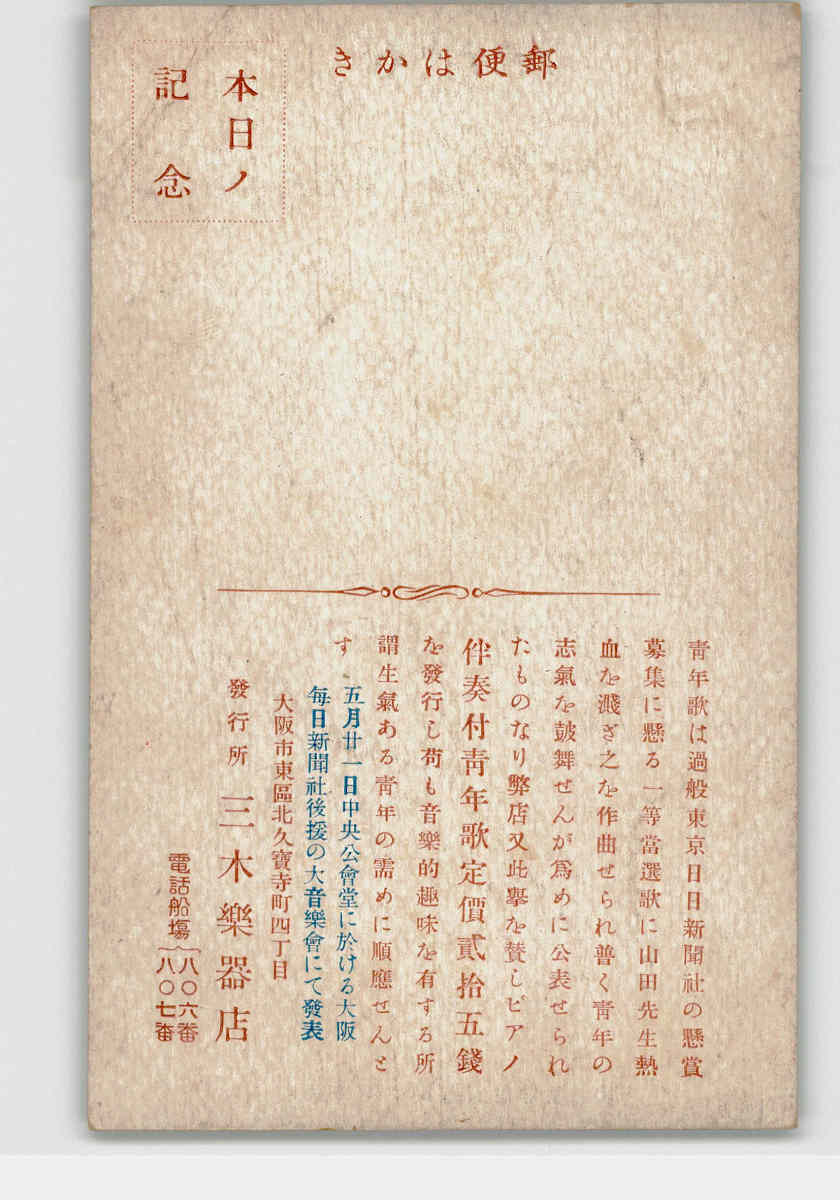 郵便はかき
本日ノ
記念
青年歌は過般東京日日新聞社の懸賞
募集に懸る一等當選歌に山田先生熱
血を濺ぎ之を作曲せられ普く青年の
志氣を鼓舞せんが爲めに公表せられ
たものなり弊店又此擧を賛しピアノ
伴奏付青年歌定價貳拾五錢
を發行し苟も音樂的趣味を有する所
謂生氣ある青年の需めに順應せんと
す
五月廿一日中央公會堂に於ける大阪
每日新聞社後援の大音樂會にて發表
大阪市東區北久寶寺町四丁目
發行所 三木樂器店
電話船塲 八〇六番
八〇七番